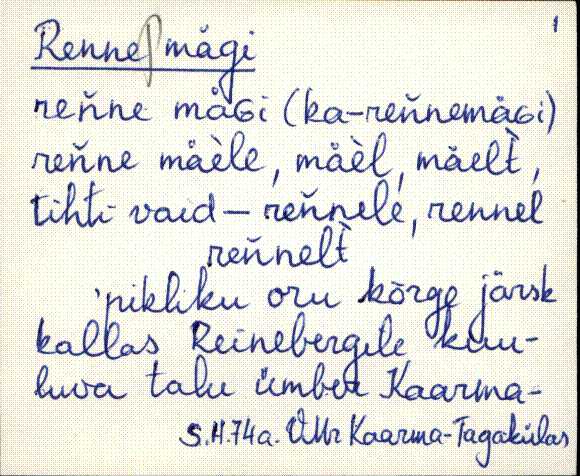 1
Renne mågi
reňne måGi (ka-reňnemåGi)
reňne måèle, måèl, måelt̀,
tihti vaid — reňnele, rennel
reňnelt̀
'pikliku oru kõrge järsk
kallas Reinebergile kuu-
luva talu ümber Kaarma-
S.H.74a. VMr Kaarma-Tagakülas